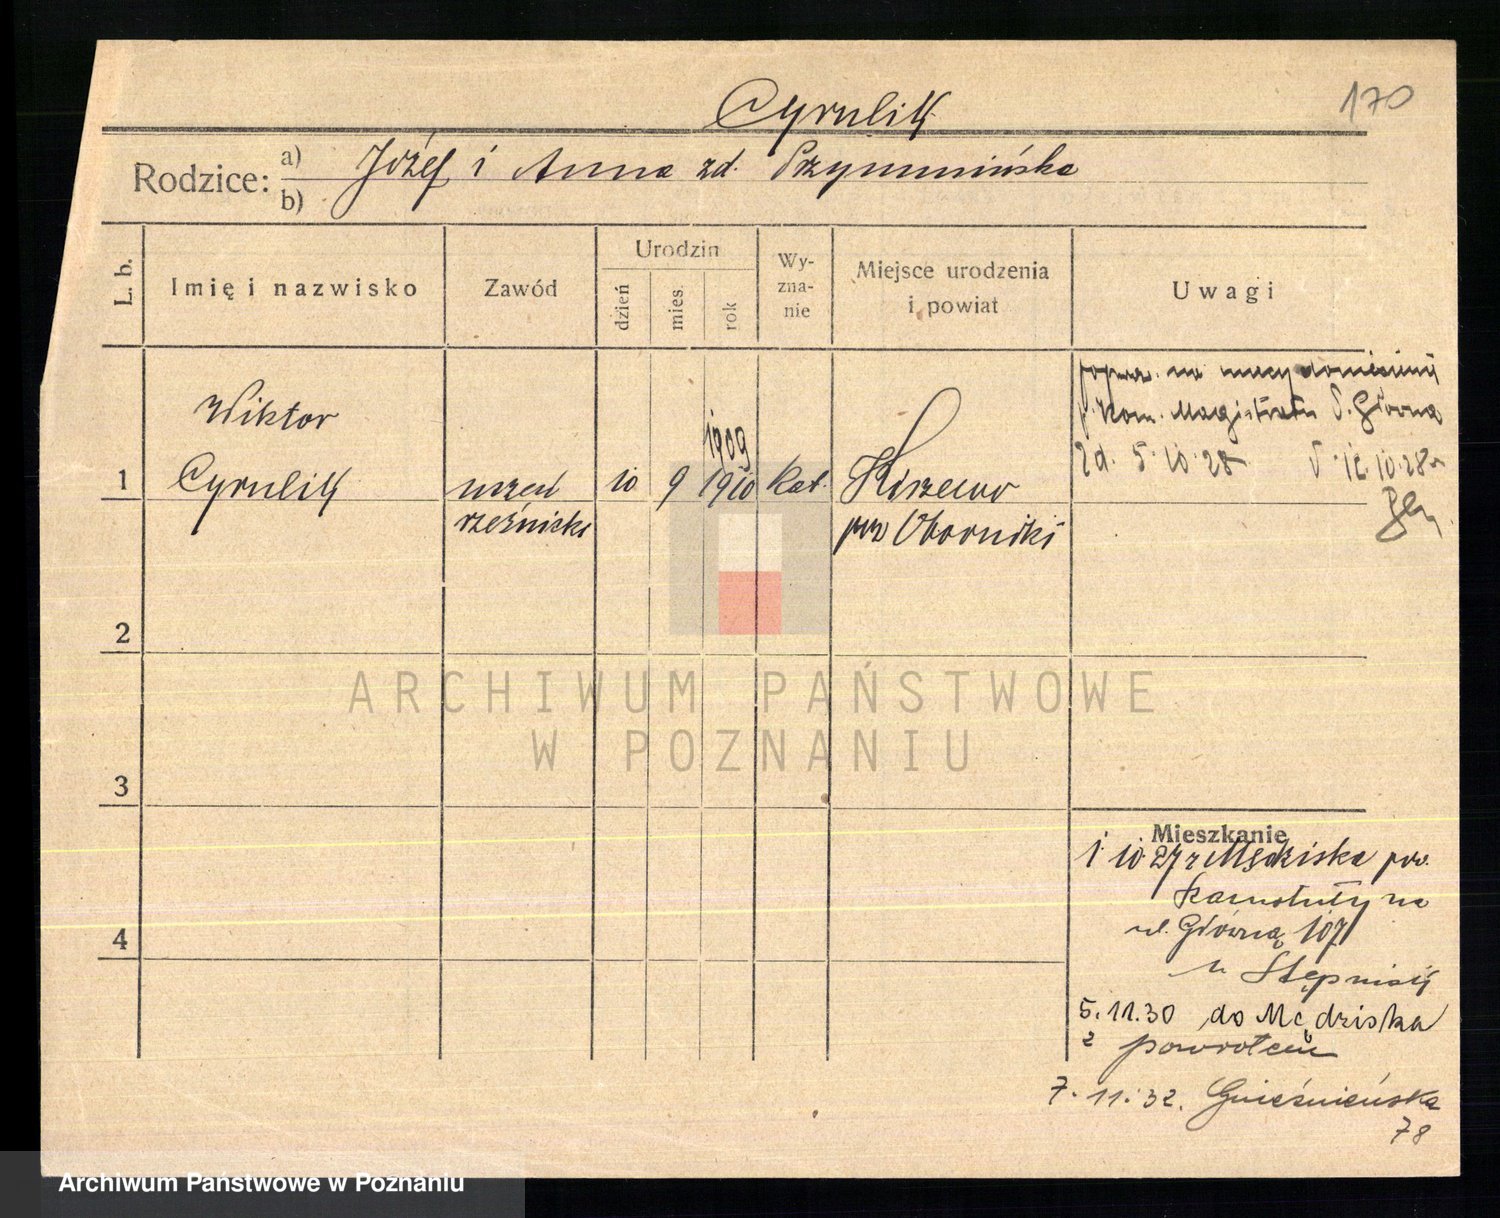 170
Cyrulik
Rodzice: a) Józef i Anna zd. Szymmińska
b)
L. b.
Imię i nazwisko
Zawód
Urodzin
dzień
mies.
rok
Wy-
zna-
nie
Miejsce urodzenia
i powiat
Uwagi
popraw. na mocy doniesienia
p. Kom. Magistratu P. Główna
zd. 5.10.28
12.10.28
Wiktor
1909
1 Cyrulik uczeń 10 9 1910 kat. Kiszewo
rzeźnicki
pow Oborniki
2
3
4
Mieszkanie
1.10 27 z Mędziska pow.
Szamotuły na
ul. Główną 107
u Stępniak
5.11.30 do Mędziska
z powrotem
7.11.32. Gnieźnieńska
78
ARCHIWUM PAŃSTWOWE
W POZNANIU
Archiwum Państwowe w Poznaniu